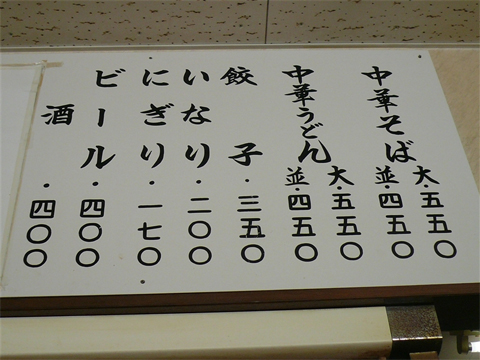 中華そば 大・五五〇
並・四五〇
中華うどん 大・五五〇
並・四五〇
餃子・三五〇
いなり・二〇〇
にぎり・一七〇
ビール・四〇〇
酒・四〇〇